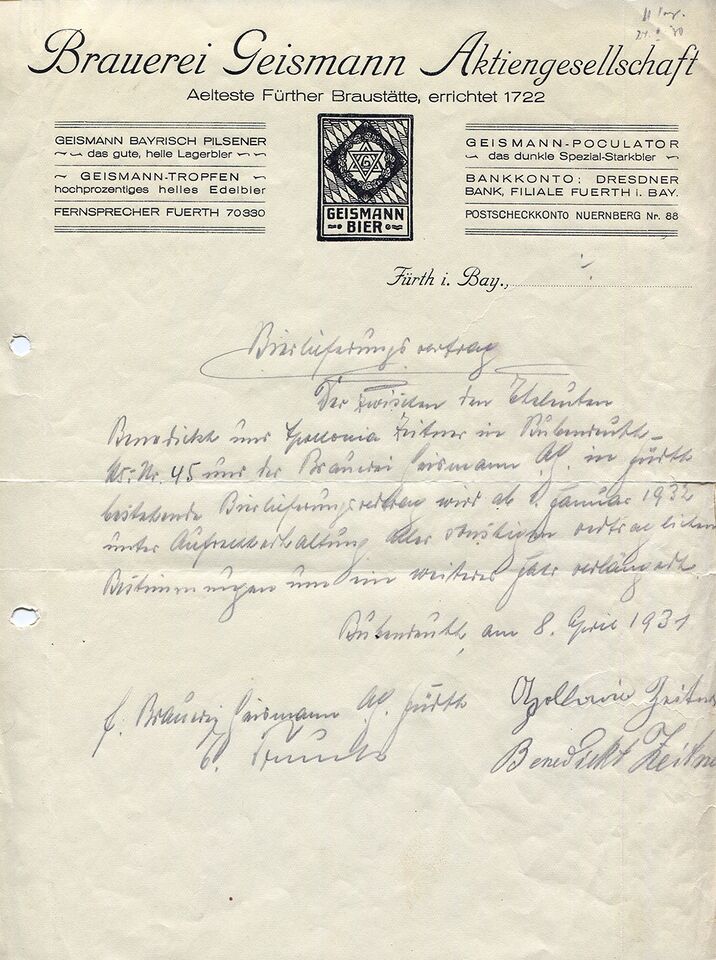 Brauerei Geismann Aktiengesellschaft
Aelteste Fürther Braustätte, errichtet 1722
GEISMANN BAYRISCH PILSENER
das gute, helle Lagerbier
GEISMANN-TROPFEN
hochprozentiges helles Edelbier
FERNSPRECHER FUERTH 70330
G
GEISMANN
BIER
GEISMANN-POCULATOR
das dunkle Spezial-Starkbier
BANKKONTO: DRESDNER
BANK, FILIALE FUERTH i. BAY.
POSTSCHECKKONTO NUERNBERG Nr. 88
Fürth i. Bay.,
Bierlieferungsvertrag
Der zwischen den Eheleuten
Benedickt und Apollonia Zeitner in Bubenreuth
Hs. Nr. 45 und der Brauerei Geismann AG. in Fürth
bestehende Bierlieferungsvertrag wird ab 1. Januar 1932
unter Aufrechterhaltung aller sonstigen vertraglichen
Bestimmungen um ein weiteres Jahr verlängert.
Bubenreuth, am 8. April 1931
f. Brauerei Geismann AG. Fürth
Apollonia Zeitner
Benedickt Zeitne